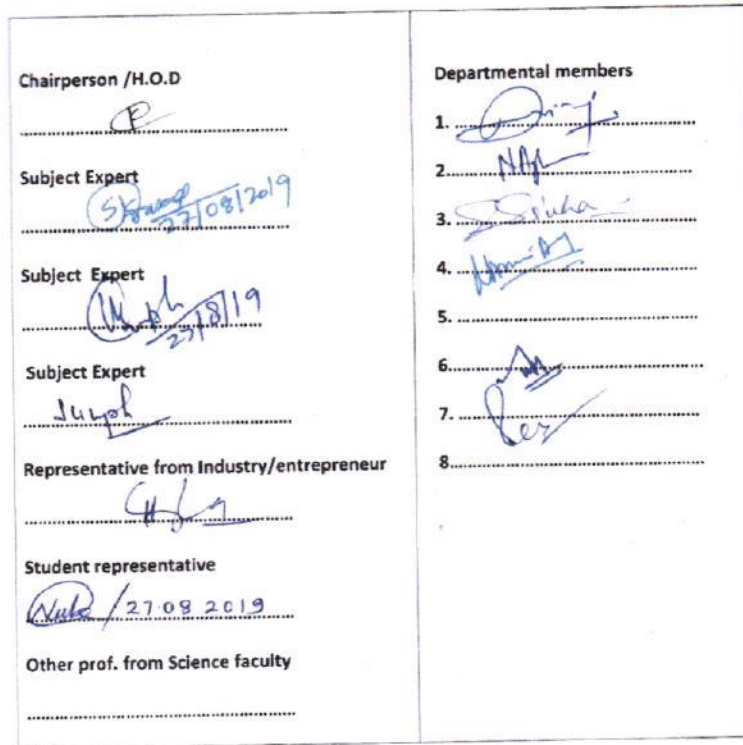 Chairperson /H.O.D
Subject Expert
27/08/2019
Subject Expert
27/8/19
Subject Expert
Representative from Industry/entrepreneur
Student representative
/ 27.08 2019
Other prof. from Science faculty
Departmental members
1.
2.
3. SSinha
4.
5.
6.
7.
8.